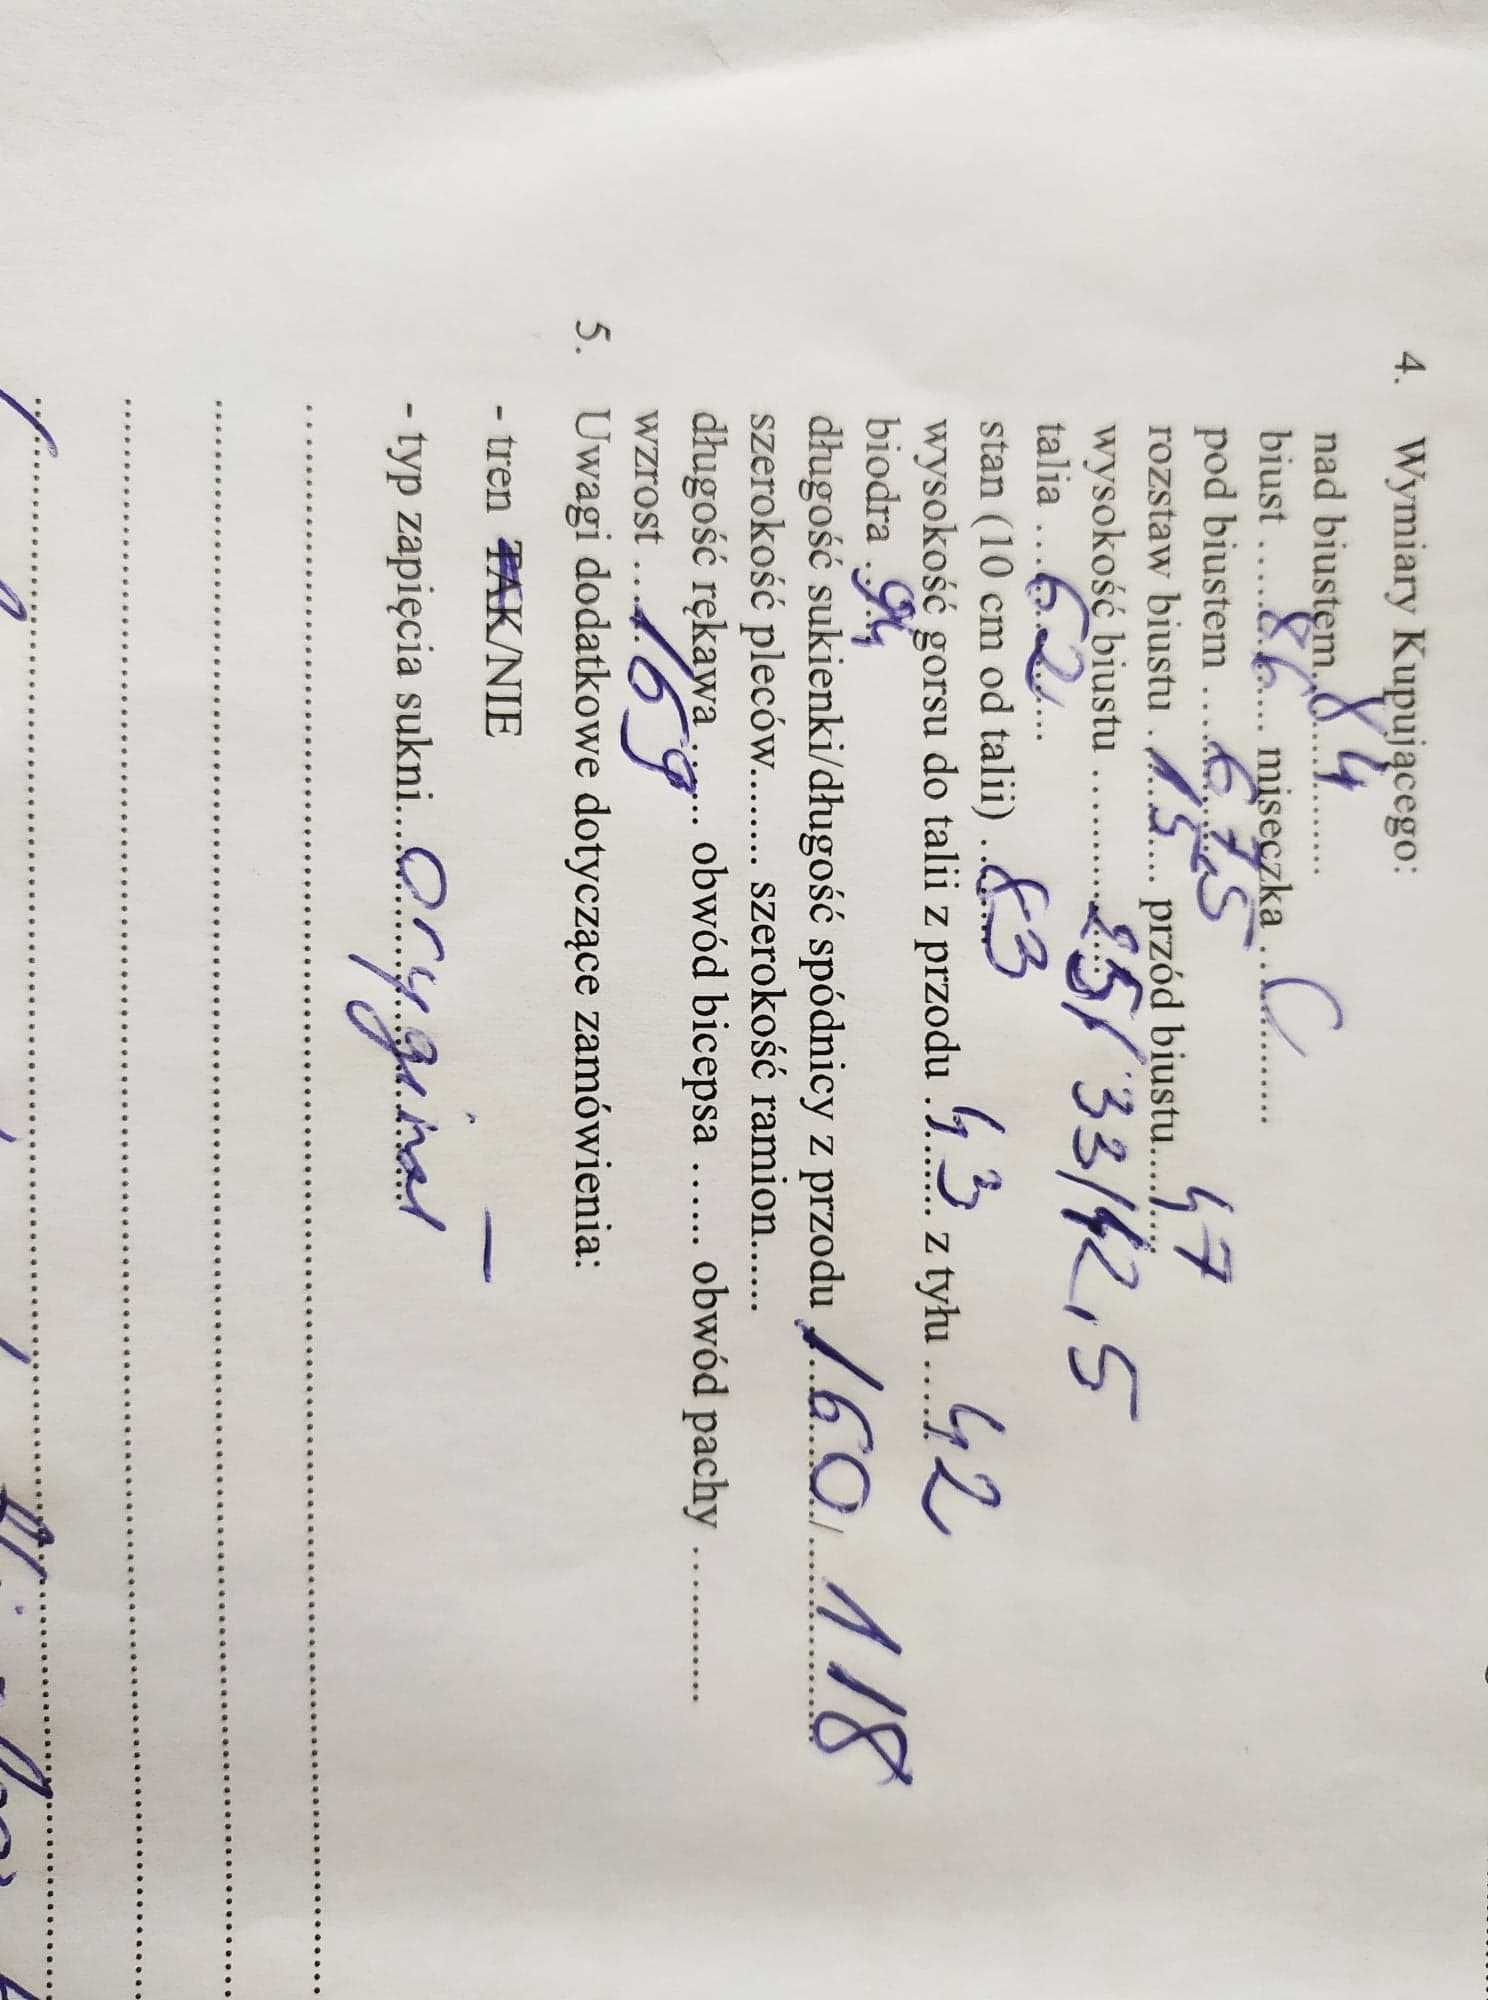 4. Wymiary Kupującego:
nad biustem 84
biust 86 miseczka C
pod biustem 67,5
rozstaw biustu 15 przód biustu 47
wysokość biustu 25/33/42,5
talia 62
stan (10 cm od talii) 83
wysokość gorsu do talii z przodu 43 z tyłu 42
biodra 94
długość sukienki/długość spódnicy z przodu 160/118
szerokość pleców....... szerokość ramion......
długość rękawa ....... obwód bicepsa ...... obwód pachy ...........
wzrost 169
5. Uwagi dodatkowe dotyczące zamówienia:
- tren TAK/NIE –
- typ zapięcia sukni oryginał